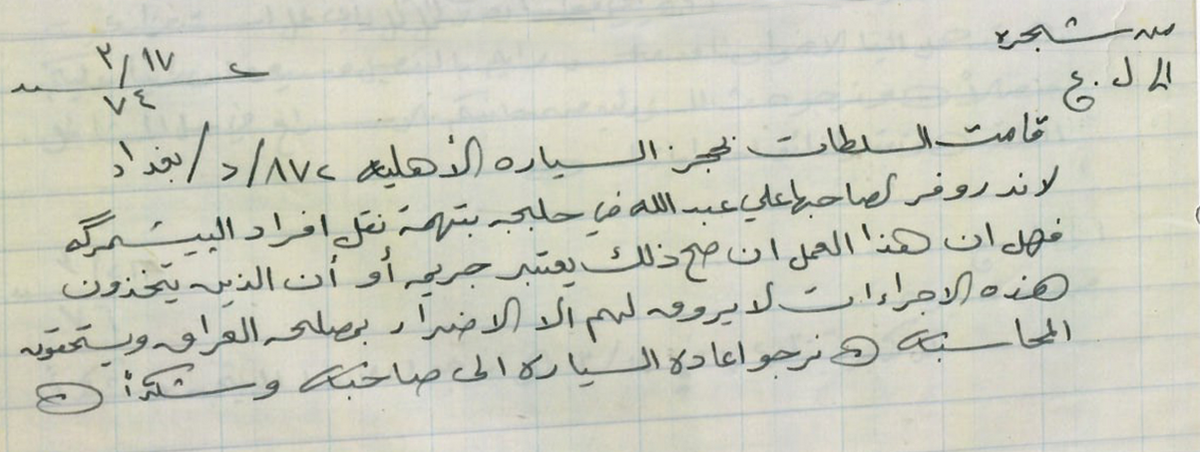 من شجره
الى ل.ع
٣/١٧
٧٤
قامت السلطات بحجز السياره الأهليه ٨٧٢/د/بغداد
لاندروفر لصاحبها علي عبدالله في حلبجه بتهمة نقل افراد البيشمرگه
فهل ان هذا العمل ان صح ذلك يعتبر جريمه أو أن الذين يتخذون
هذه الاجراءات لا يروق لهم الا الاضرار بمصلحه العراق ويستحقون
المحاسبه نرجو اعاده السياره الى صاحبه وشكراً